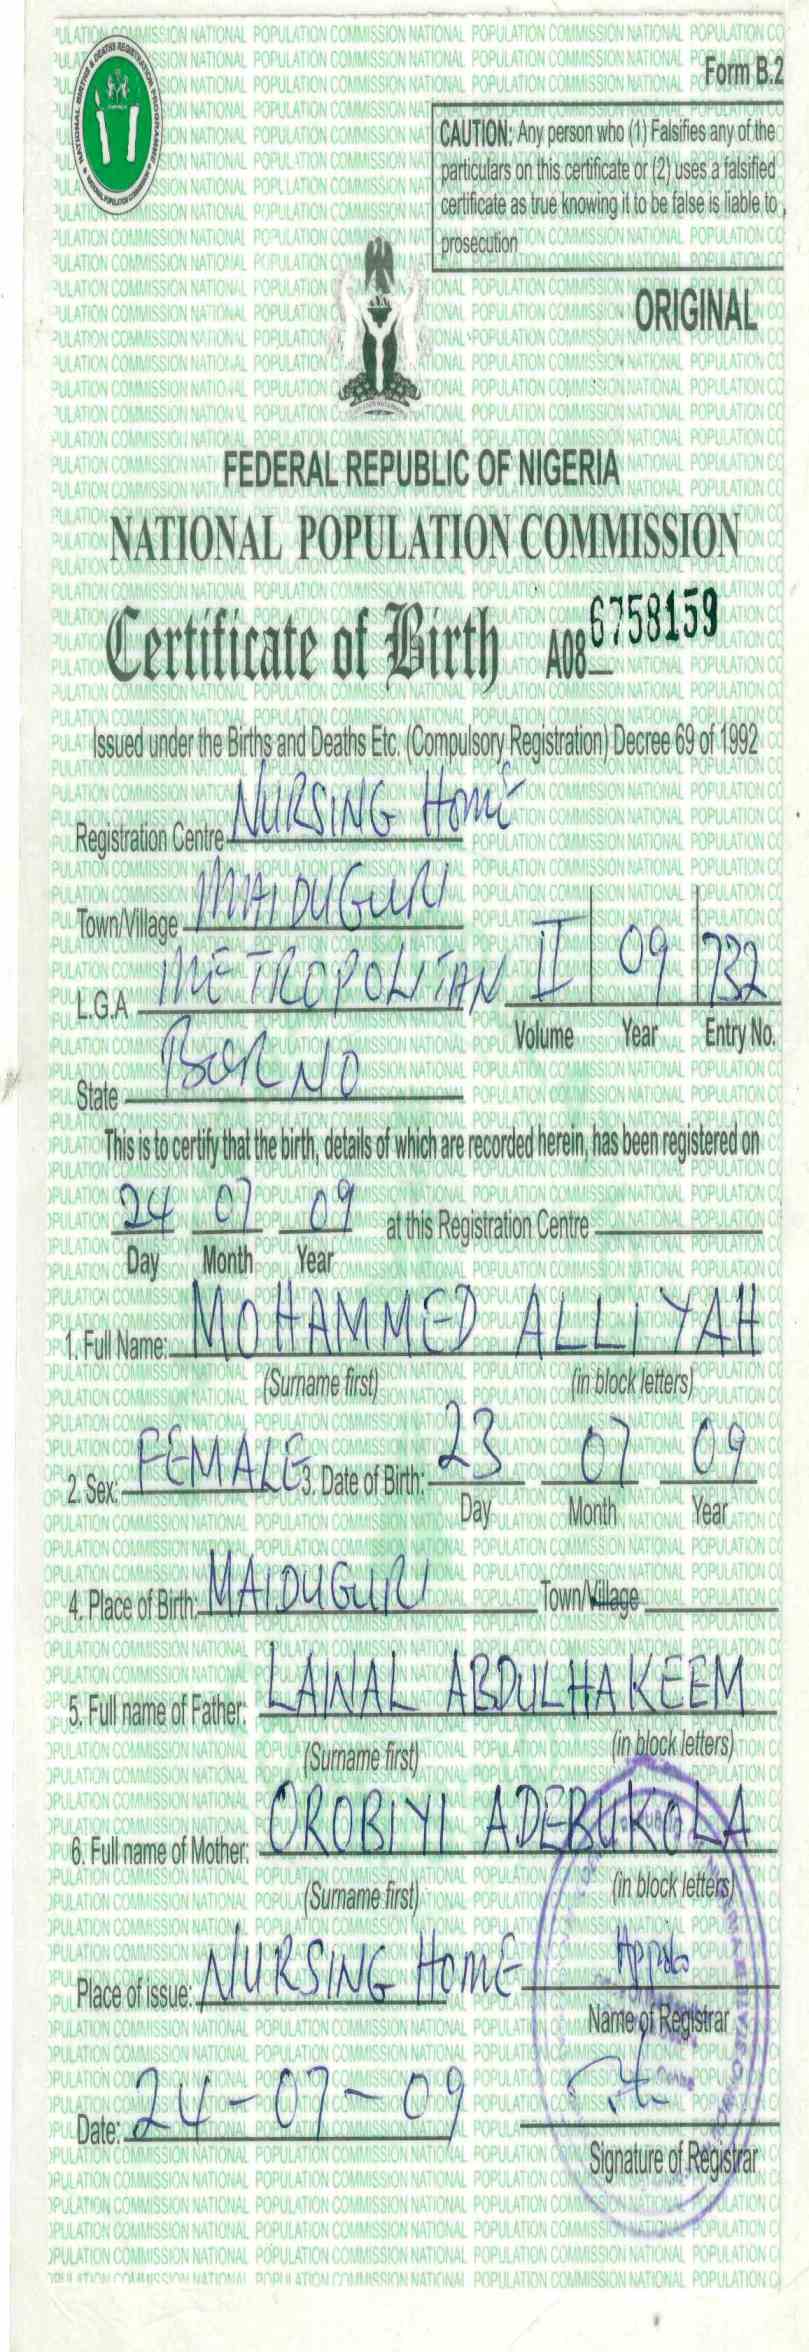 Form B.2
CAUTION: Any person who (1) Falsifies any of the
particulars on this certificate or (2) uses a falsified
certificate as true knowing it to be false is liable to
prosecution
ORIGINAL
FEDERAL REPUBLIC OF NIGERIA
NATIONAL POPULATION COMMISSION
Certificate of Birth A08 6758159
Issued under the Births and Deaths Etc. (Compulsory Registration) Decree 69 of 1992
Registration Centre NURSING HOME
Town/Village MAIDUGURI
L.G.A METROPOLITAN II 09 732
Volume Year Entry No.
State BORNO
This is to certify that the birth, details of which are recorded herein, has been registered on
24 07 09 at this Registration Centre
Day Month Year
1. Full Name: MOHAMMED ALLIYAH
(Surname first) (in block letters)
2. Sex: FEMALE 3. Date of Birth: 23 07 09
Day Month Year
4. Place of Birth: MAIDUGURI Town/Village
5. Full name of Father: LAWAL ABDULHAKEEM
(Surname first) (in block letters)
6. Full name of Mother: OROBIYI ADEBUKOLA
(Surname first) (in block letters)
Place of issue: NURSING HOME
Name of Registrar
Date: 24-07-09
Signature of Registrar